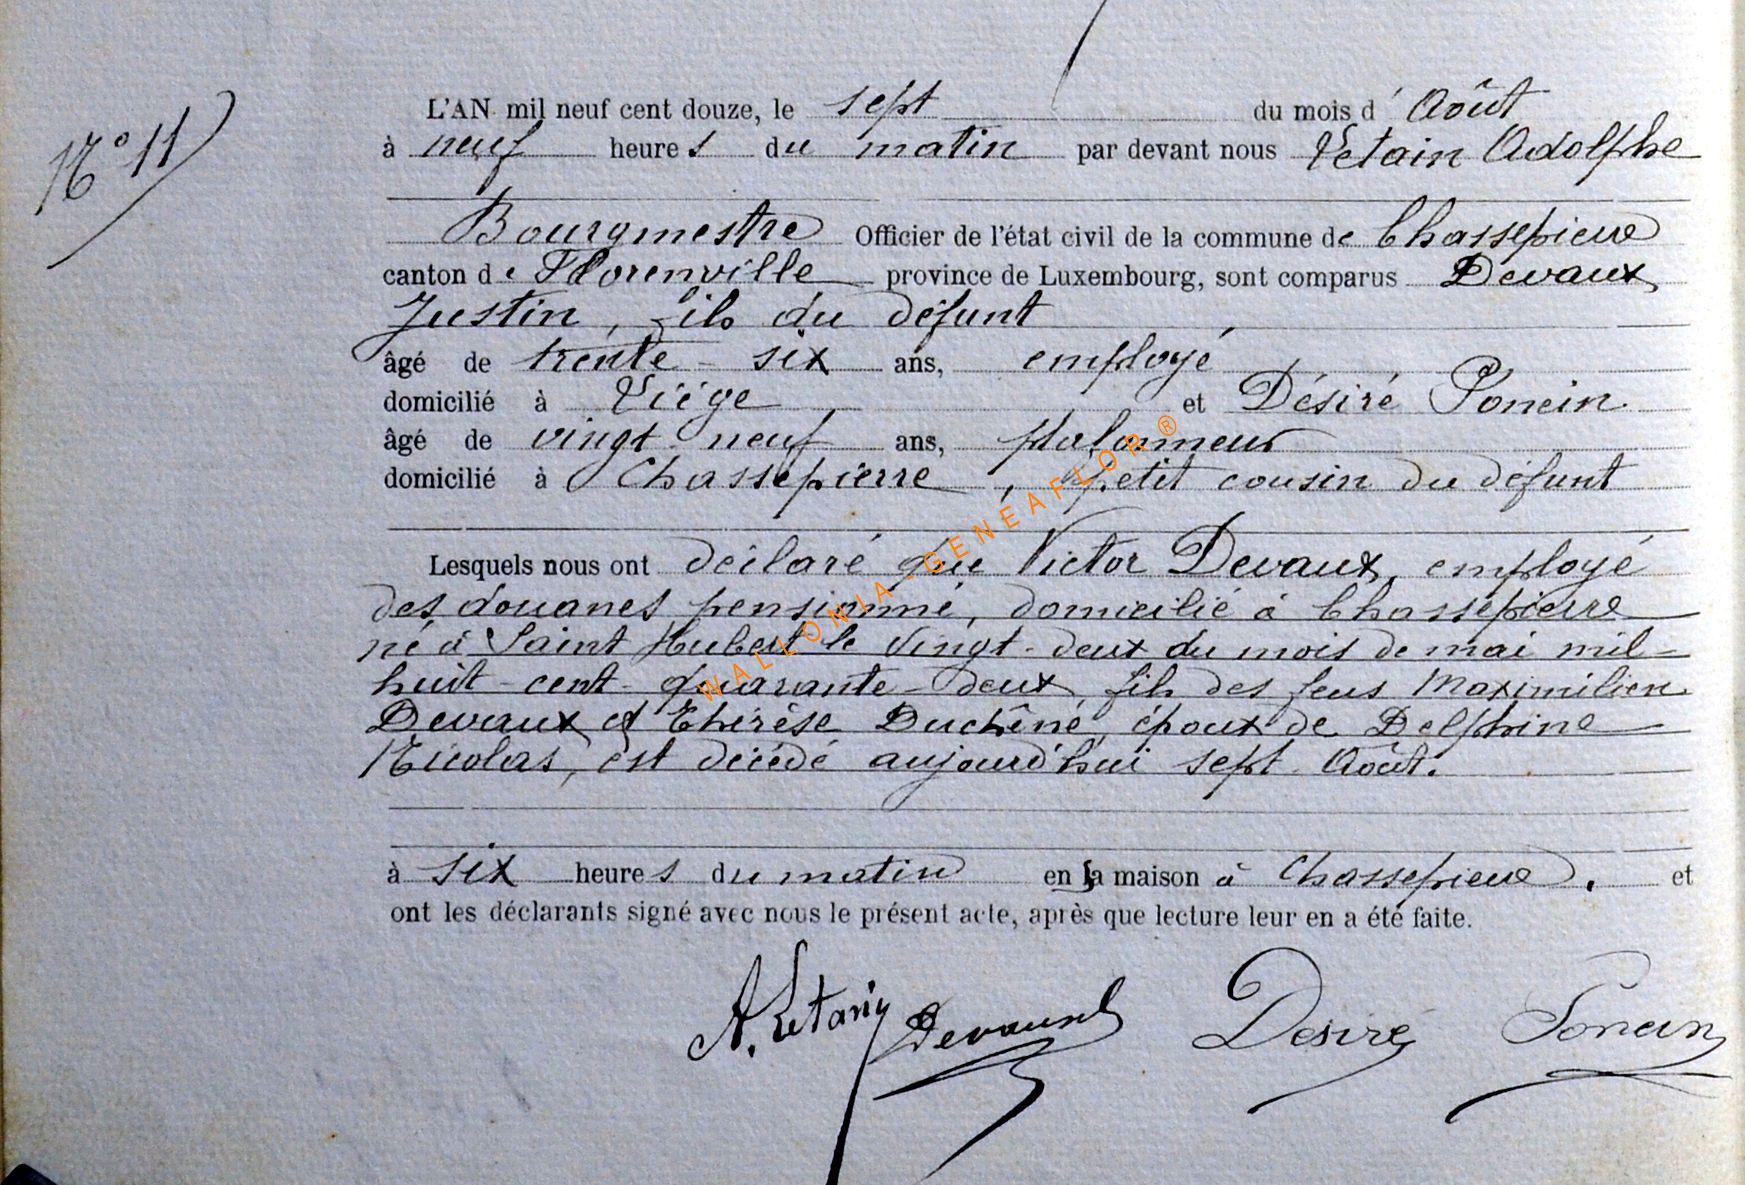 N° 11
L'AN mil neuf cent douze, le sept du mois d' Août
à neuf heures du matin par devant nous Letain Adolphe
Bourgmestre Officier de l'état civil de la commune de Chassepierre
canton de Florenville province de Luxembourg, sont comparus Devaux
Justin, fils du défunt
âgé de trente-six ans, employé
domicilié à Liége et Désiré Poncin
âgé de vingt-neuf ans, plafonneur
domicilié à Chassepierre, petit cousin du défunt
Lesquels nous ont déclaré que Victor Devaux, employé
des douanes pensionné, domicilié à Chassepierre
né à Saint Hubert le vingt-deux du mois de mai mil-
huit-cent-quarante-deux, fils des feus Maximilien
Devaux et Thérèse Duchêne, époux de Delphine
Nicolas, est décédé aujourd'hui sept Août.
à six heures du matin en sa maison à Chassepierre, et
ont les déclarants signé avec nous le présent acte, après que lecture leur en a été faite.
A. Letain Devaux Désiré Poncin
WALLONIA-GENEAFLOR®